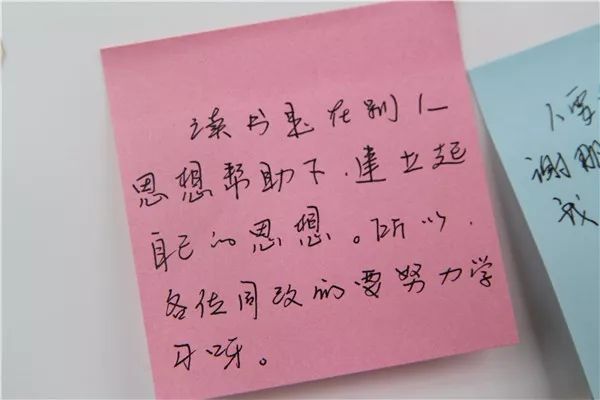 读书是在别人
思想帮助下,建立起
自己的思想。所以,
各位同改的要努力学
习呀。
不要
谢那
我